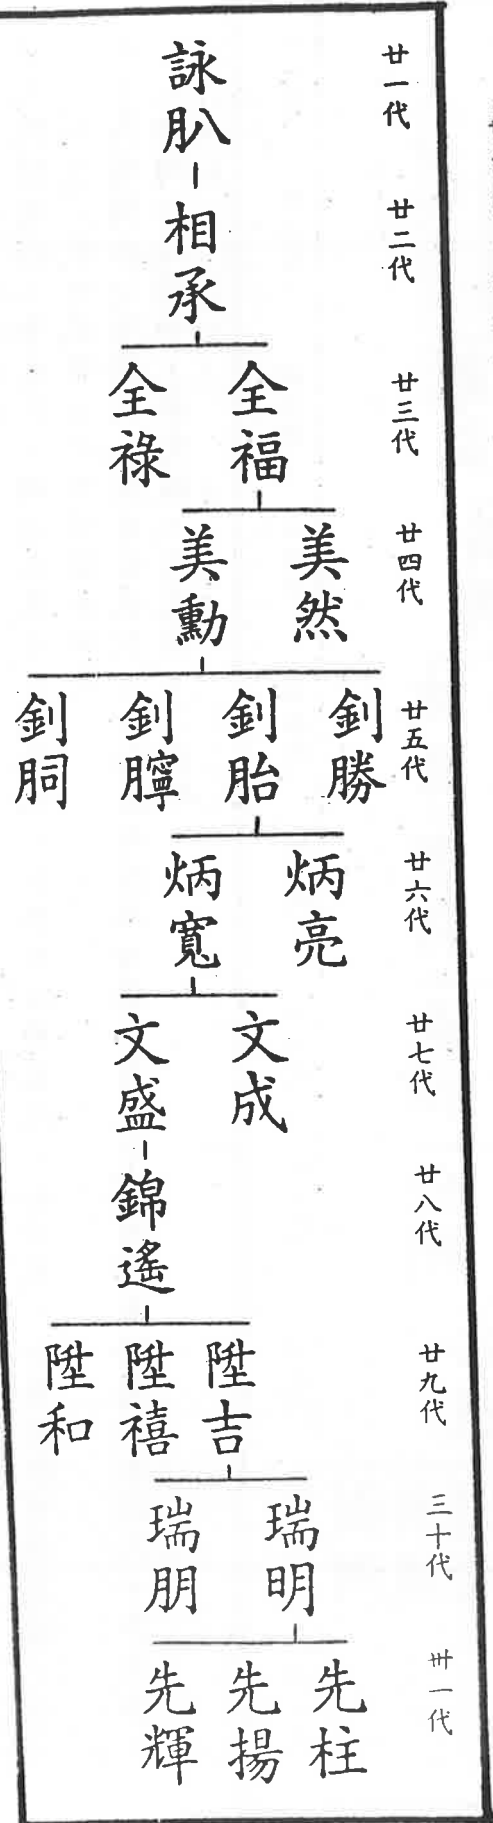 廿一代
詠肌
廿二代
相承
廿三代
全福
全祿
廿四代
美然
美勳
廿五代
釗勝
釗胎
釗䏡
釗胴
廿六代
炳亮
炳寬
廿七代
文成
文盛
廿八代
錦遙
廿九代
陞吉
陞禧
陞和
三十代
瑞明
瑞朋
卅一代
先柱
先揚
先輝